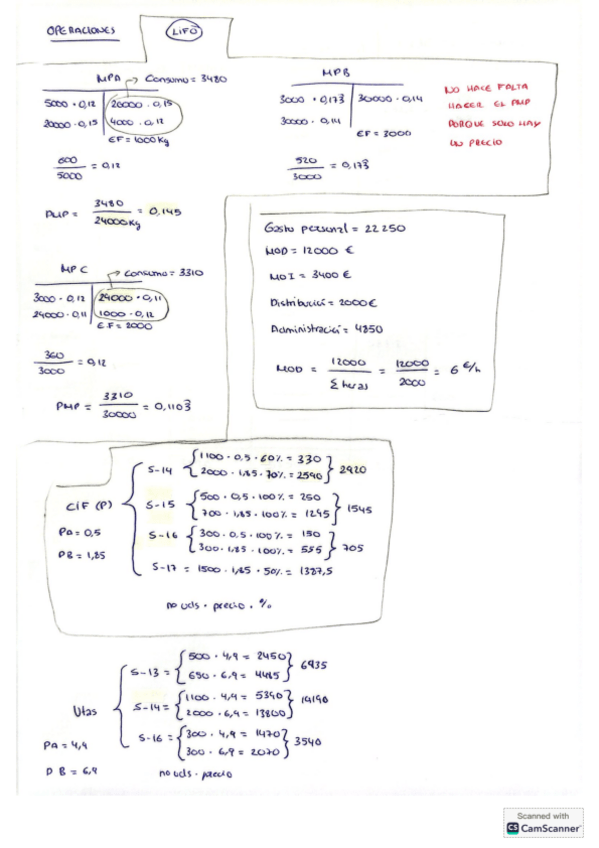 OPERACIONES
LIFO
MPA → Consumo = 3480
5000 · 0,12 | 20000 · 0,15
20000 · 0,15 | 4000 · 0,12
EF = 1000 Kg
600/5000 = 0,12
PMP = 3480/24000Kg = 0,145
MPB
3000 · 0,173 | 30000 · 0,14
30000 · 0,14
EF = 3000
520/3000 = 0,173
NO HACE FALTA
HACER EL PMP
PORQUE SOLO HAY
UN PRECIO
MPC → Consumo = 3310
3000 · 0,12 | 24000 · 0,11
24000 · 0,11 | 1000 · 0,12
E.F = 2000
360/3000 = 0,12
PMP = 3310/30000 = 0,1103
Gasto personal = 22250
MOD = 12000 €
MOI = 3400 €
Distribució = 2000 €
Administració = 4850
MOD = 12000/Σ horas = 12000/2000 = 6 €/h
CIF (P)
PA = 0,5
PB = 1,85
S-14 { 1100 · 0,5 · 60% = 330
2000 · 1,85 · 70% = 2590 } 2920
S-15 { 500 · 0,5 · 100% = 250
700 · 1,85 · 100% = 1295 } 1545
S-16 { 300 · 0,5 · 100% = 150
300 · 1,85 · 100% = 555 } 705
S-17 = 1500 · 1,85 · 50% = 1387,5
no uds · precio · %
Vtas
PA = 4,9
PB = 6,9
S-13 = { 500 · 4,9 = 2450
650 · 6,9 = 4485 } 6935
S-14 = { 1100 · 4,9 = 5390
2000 · 6,9 = 13800 } 19190
S-16 = { 300 · 4,9 = 1470
300 · 6,9 = 2070 } 3540
no uds · precio
Scanned with
CS CamScanner